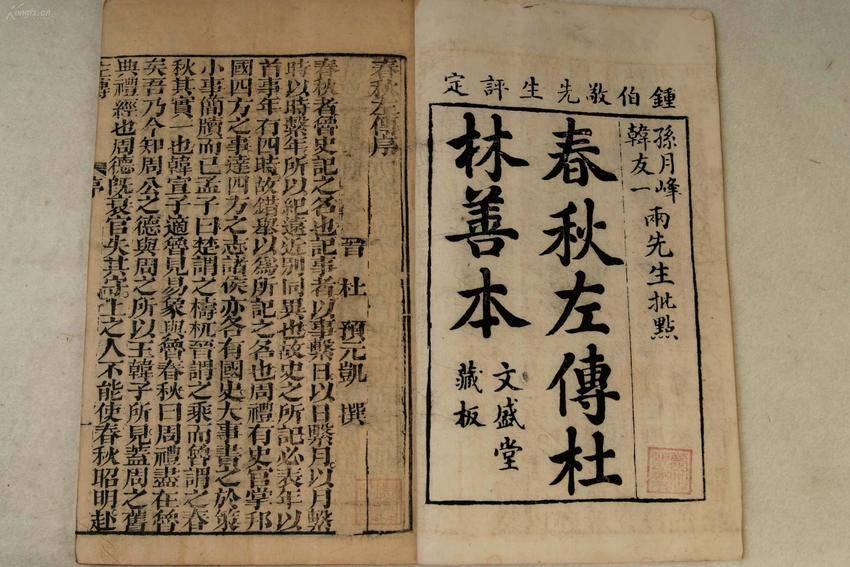 鍾伯敬先生評定
孫月峰
韓友一
兩先生批點
春秋左傳杜
林善本
文盛堂
藏板
春秋左傳序
晉 杜 預元凱 撰
春秋者魯史記之名也記事者以事繫日以日繫月以月繫
時以時繫年所以紀遠近別同異也故史之所記必表年以
首事年有四時故錯舉以為所記之名也周禮有史官掌邦
國四方之事達四方之志諸侯亦各有國史大事書之於策
小事簡牘而已孟子曰楚謂之檮杌晉謂之乘而魯謂之春
秋其實一也韓宣子適魯見易象與魯春秋曰周禮盡在魯
矣吾乃今知周公之德與周之所以王韓子所見蓋周之舊
典禮經也周德既衰官失其守上之人不能使春秋昭明赴
左傳
序
一